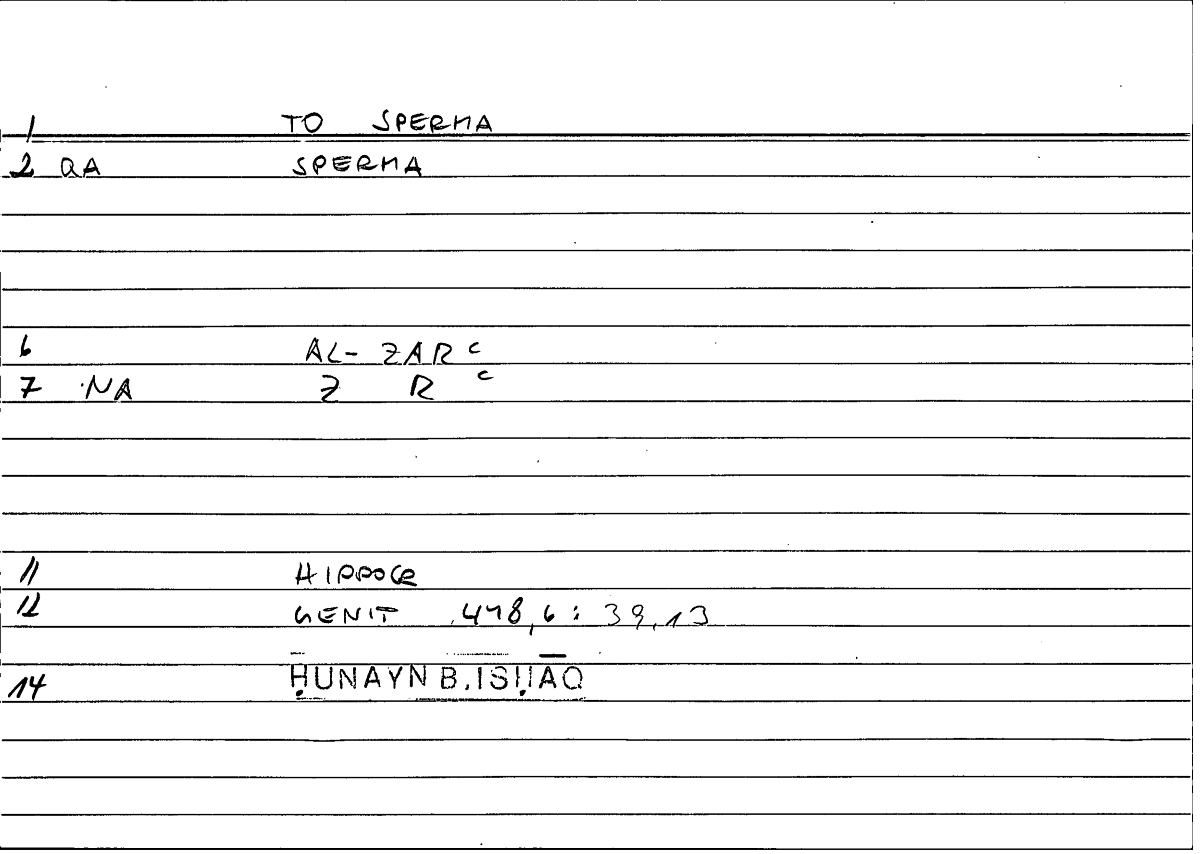 1 TO SPERMA
2 QA SPERMA
6 AL-ZAR ᶜ
7 NA Z R ᶜ
11 HIPPOCR
12 GENIT 478,6: 39,13
14 ḤUNAYN B. ISḤĀQ